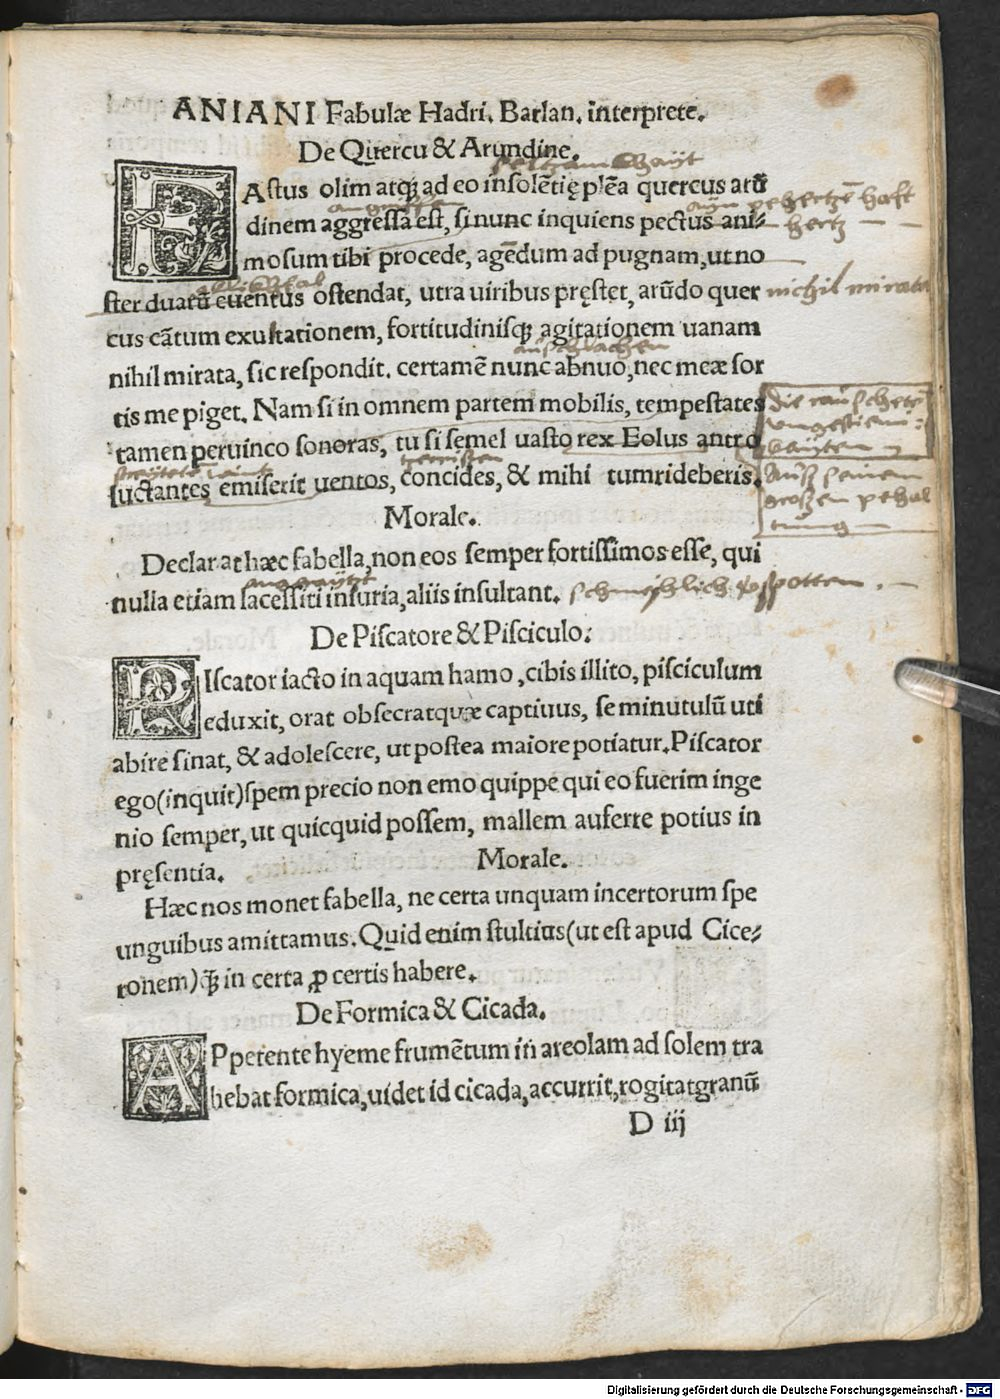 ANIANI Fabulæ Hadri. Barlan. interprete.
De Quercu & Arundine.
FAstus olim atqꝫ ad eo insolẽtię plẽa quercus arũ
dinem aggressa est, si nunc inquiens pectus ani⸗
mosum tibi procede, agẽdum ad pugnam, ut no
ster duarũ euentus ostendat, utra uiribus pręstet, arũdo quer
nichil mirata
cus cãtum exultationem, fortitudinisqꝫ agitationem uanam
nihil mirata, sic respondit. certamẽ nunc abnuo, nec meæ sor
tis me piget. Nam si in omnem partem mobilis, tempestates
tamen peruinco sonoras, tu si semel uasto rex Eolus antro
auß seinem
luctantes emiserit uentos, concides, & mihi tum rideberis.
grossen
Morale.
Declarat hæc fabella, non eos semper fortissimos esse, qui
nulla etiam lacessiti iniuria, aliis insultant.
De Piscatore & Pisciculo.
PIscator iacto in aquam hamo, cibis illito, pisciculum
eduxit, orat obsecratquæ captiuus, se minutulũ uti
abire sinat, & adolescere, ut postea maiore potiatur. Piscator
ego (inquit) spem precio non emo quippe qui eo fuerim inge
nio semper, ut quicquid possem, mallem auferre potius in
pręsentia. Morale.
Hæc nos monet fabella, ne certa unquam incertorum spe
unguibus amittamus. Quid enim stultius (ut est apud Cice⸗
ronem) qꝫ in certa ꝓ certis habere.
De Formica & Cicada.
APpetente hyeme frumẽtum in areolam ad solem tra
hebat formica, uidet id cicada, accurrit, rogitat granũ
D iij
Digitalisierung gefördert durch die Deutsche Forschungsgemeinschaft - DFG